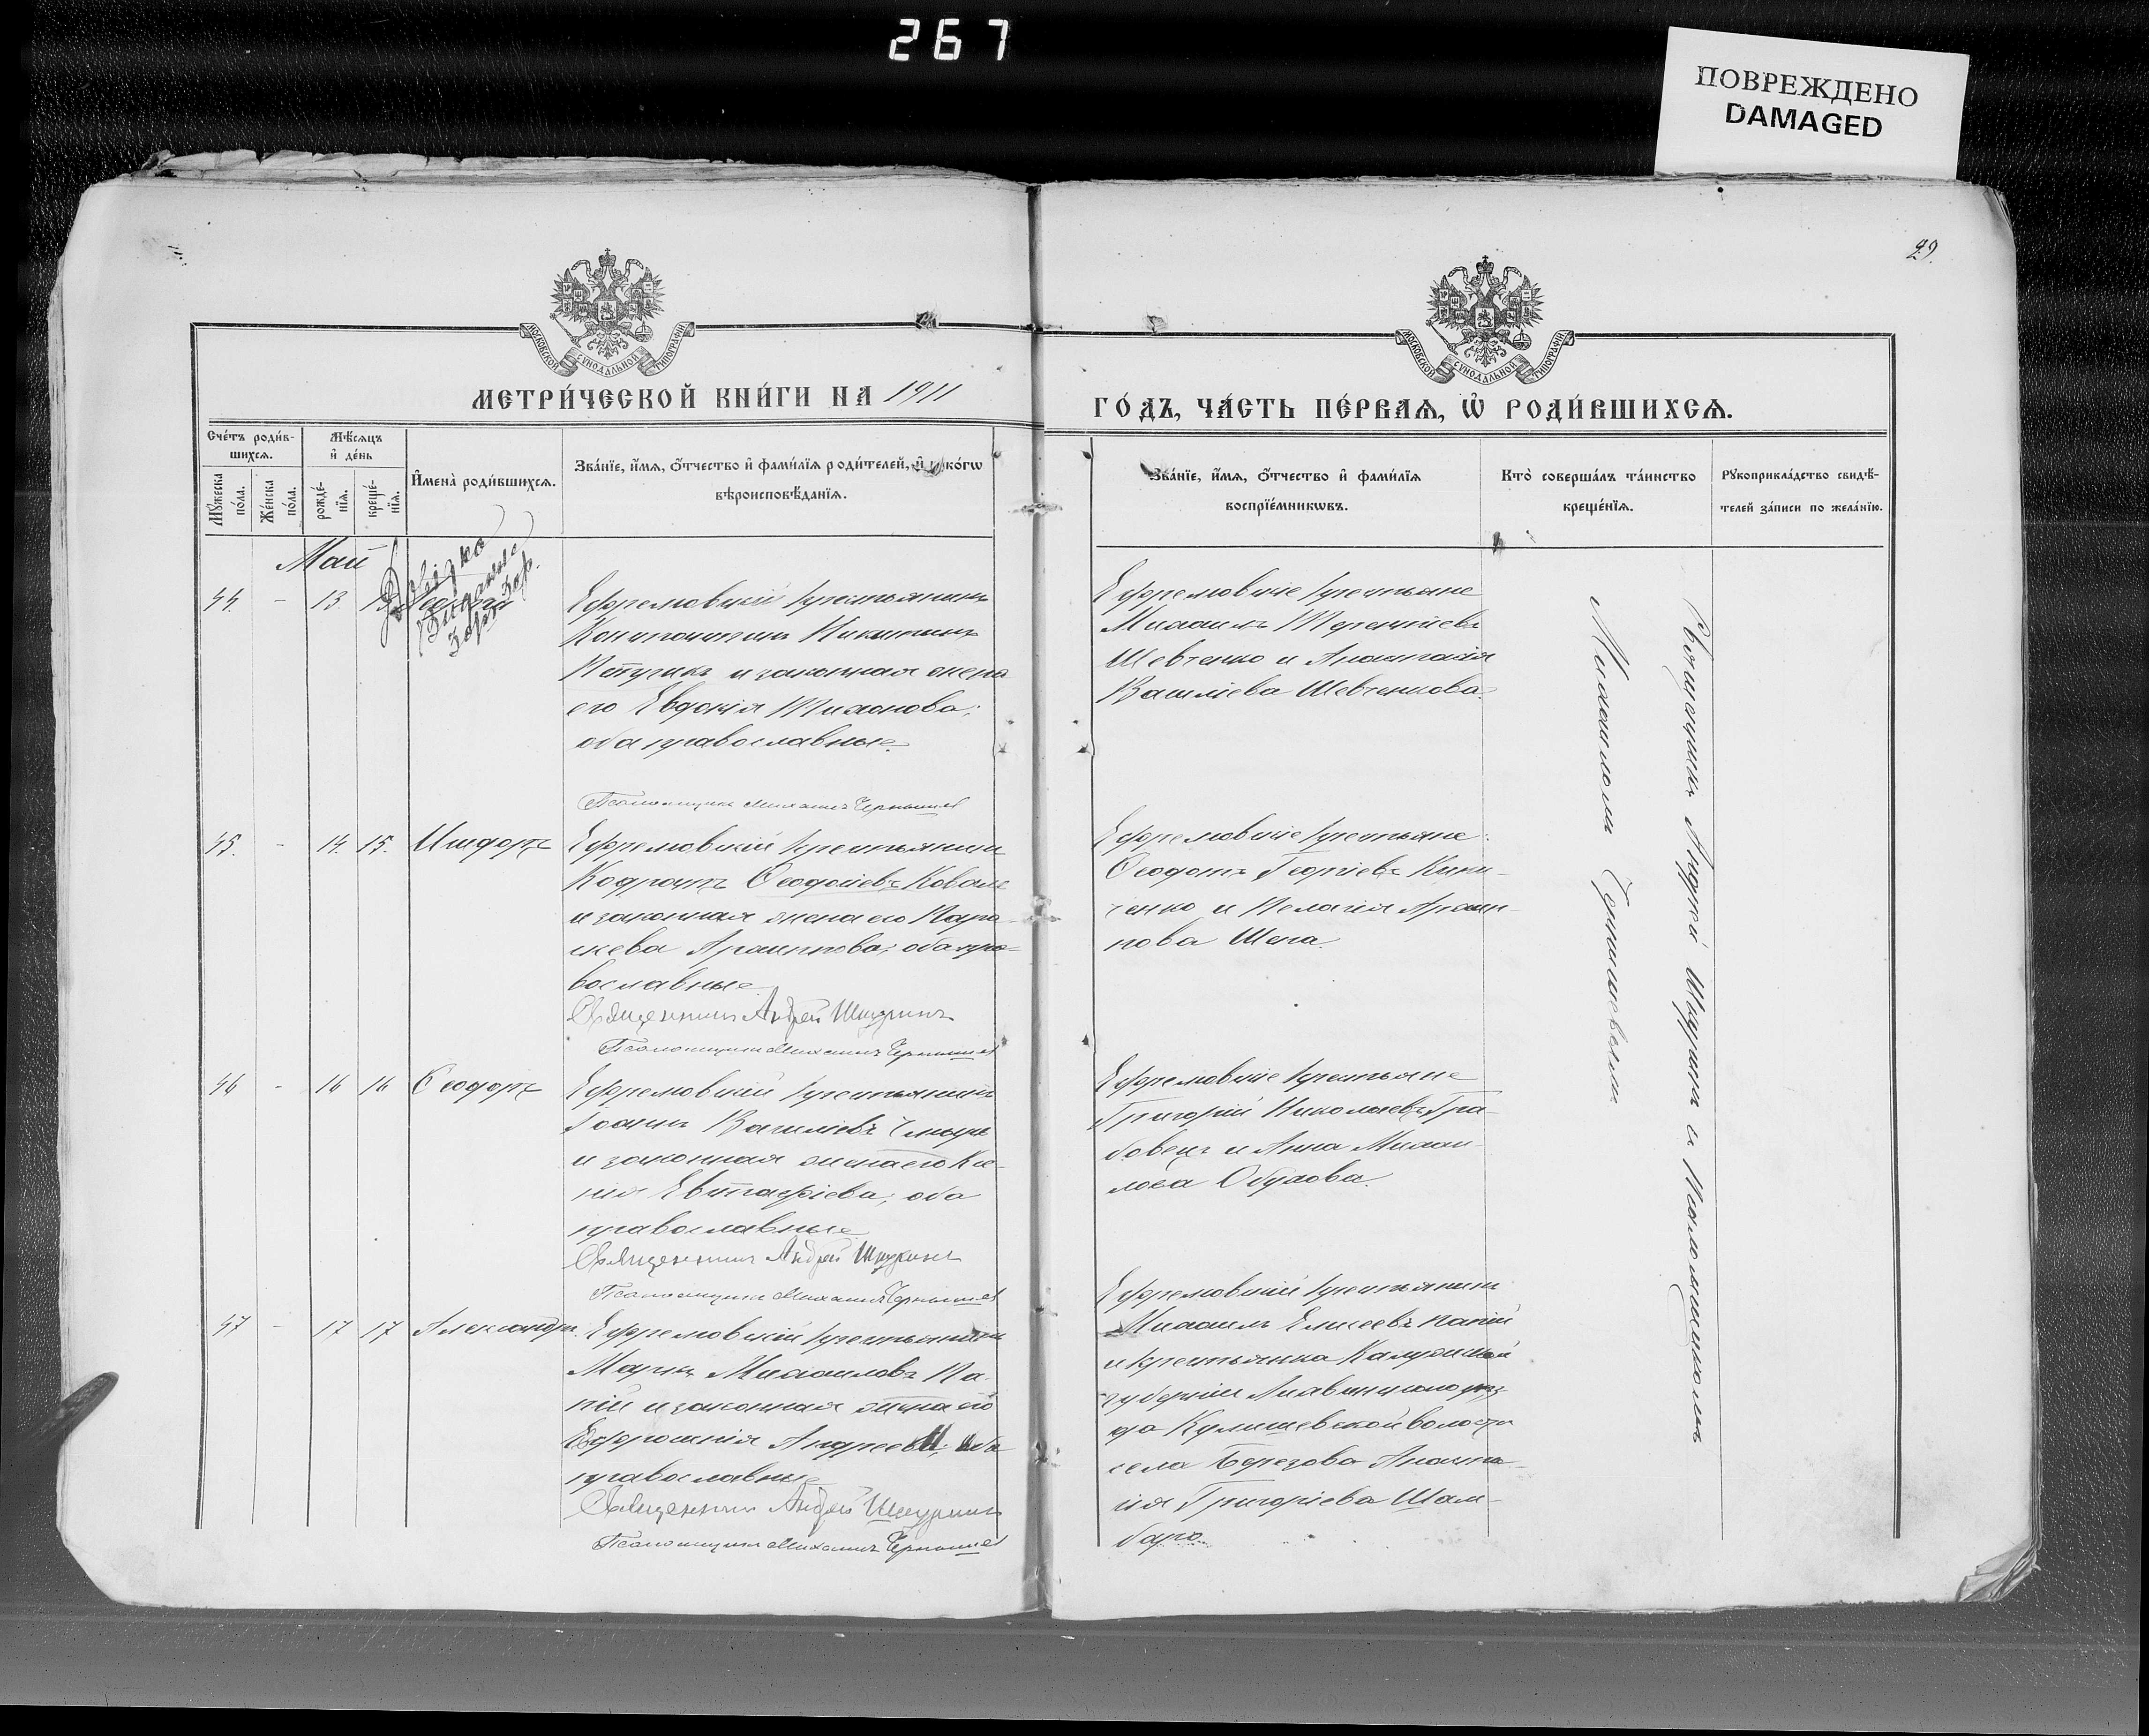 267
ПОВРЕЖДЕНО
DAMAGED
29.
МОСКОВСКОЙ СѴНОДАЛЬНОЙ ТИПОГРАФІИ
МОСКОВСКОЙ СѴНОДАЛЬНОЙ ТИПОГРАФІИ
МЕТРИ́ЧЕСКОЙ КНИ́ГИ НА 1911
ГО́ДЪ, ЧА́СТЬ ПЕ́РВАѦ, Ѡ РОДИ́ВШИХСѦ.
Сче́тъ роди́в-
шихсѧ.
Мꙋжеска по́ла.
Же́нска по́ла.
Мѣ́сѧцъ
и҆ де́нь
рожде́-
нїѧ.
креще́-
нїѧ.
И҆мена̀ роди́вшихсѧ.
Зва́нїе, и҆́мѧ, ѻ҆́тчество и҆ фами́лїѧ роди́телей, и҆ ко́гѡ
вѣроисповѣ́данїѧ.
Зва́нїе, и҆́мѧ, ѻ҆́тчество и҆ фами́лїѧ
воспрїе́мникѡвъ.
Кто̀ соверша́лъ та́инство
креще́нїѧ.
Рꙋкоприкла́дство свидѣ́-
телей за́писи по жела́нїю.
Май
44. - 13. 15 Георгій
Ефремовскій крестьянинъ
Константинъ Никитинъ
и законная жена
его Евдокія Тихонова;
оба православные.
Псаломщикъ Михаилъ Чернышев
Ефремовскіе крестьяне
Михаилъ Терентіевъ
Шевченко и Анастасія
Василіева Шевченкова.
45. - 14. 15. Исидоръ
Ефремовскій крестьянинъ
Кодратъ Ѳеодосіевъ Коваль
и законная жена его Пара-
скева Архиппова; оба пра-
вославные
Священникъ Андрей Шкуринъ
Псаломщикъ Михаилъ Чернышев
Ефремовскіе крестьяне:
Ѳеодотъ Георгіевъ Кини-
ченко и Пелагія Архип-
пова Шепа.
46 - 16 16 Ѳеодоръ
Ефремовскій крестьянинъ
Іоаннъ Василіевъ
и законная жена его Ксе-
нія Евстафіева; оба
православные
Священникъ Андрей Шкуринъ
Псаломщикъ Михаилъ Чернышев
Ефремовскіе крестьяне
Григорій Николаевъ Гра-
бовецъ и Анна Михаи-
лова Обухова.
47 - 17 17 Александръ.
Ефремовскій крестьянинъ
Маркъ Михаиловъ Па-
пій и законная жена его
Евфросинія Андреева; оба
православные
Священникъ Андрей Шкуринъ
Псаломщикъ Михаилъ Чернышев
Ефремовскій крестьянинъ
Михаилъ Елисеевъ Папій
и крестьянка Калужской
губерніи уѣз-
да волости
села Березова Анаста-
сія Григоріева Шам-
баро.
Священникъ Андрей Шкуринъ и Псаломщикомъ
Михаиломъ Чернышевымъ